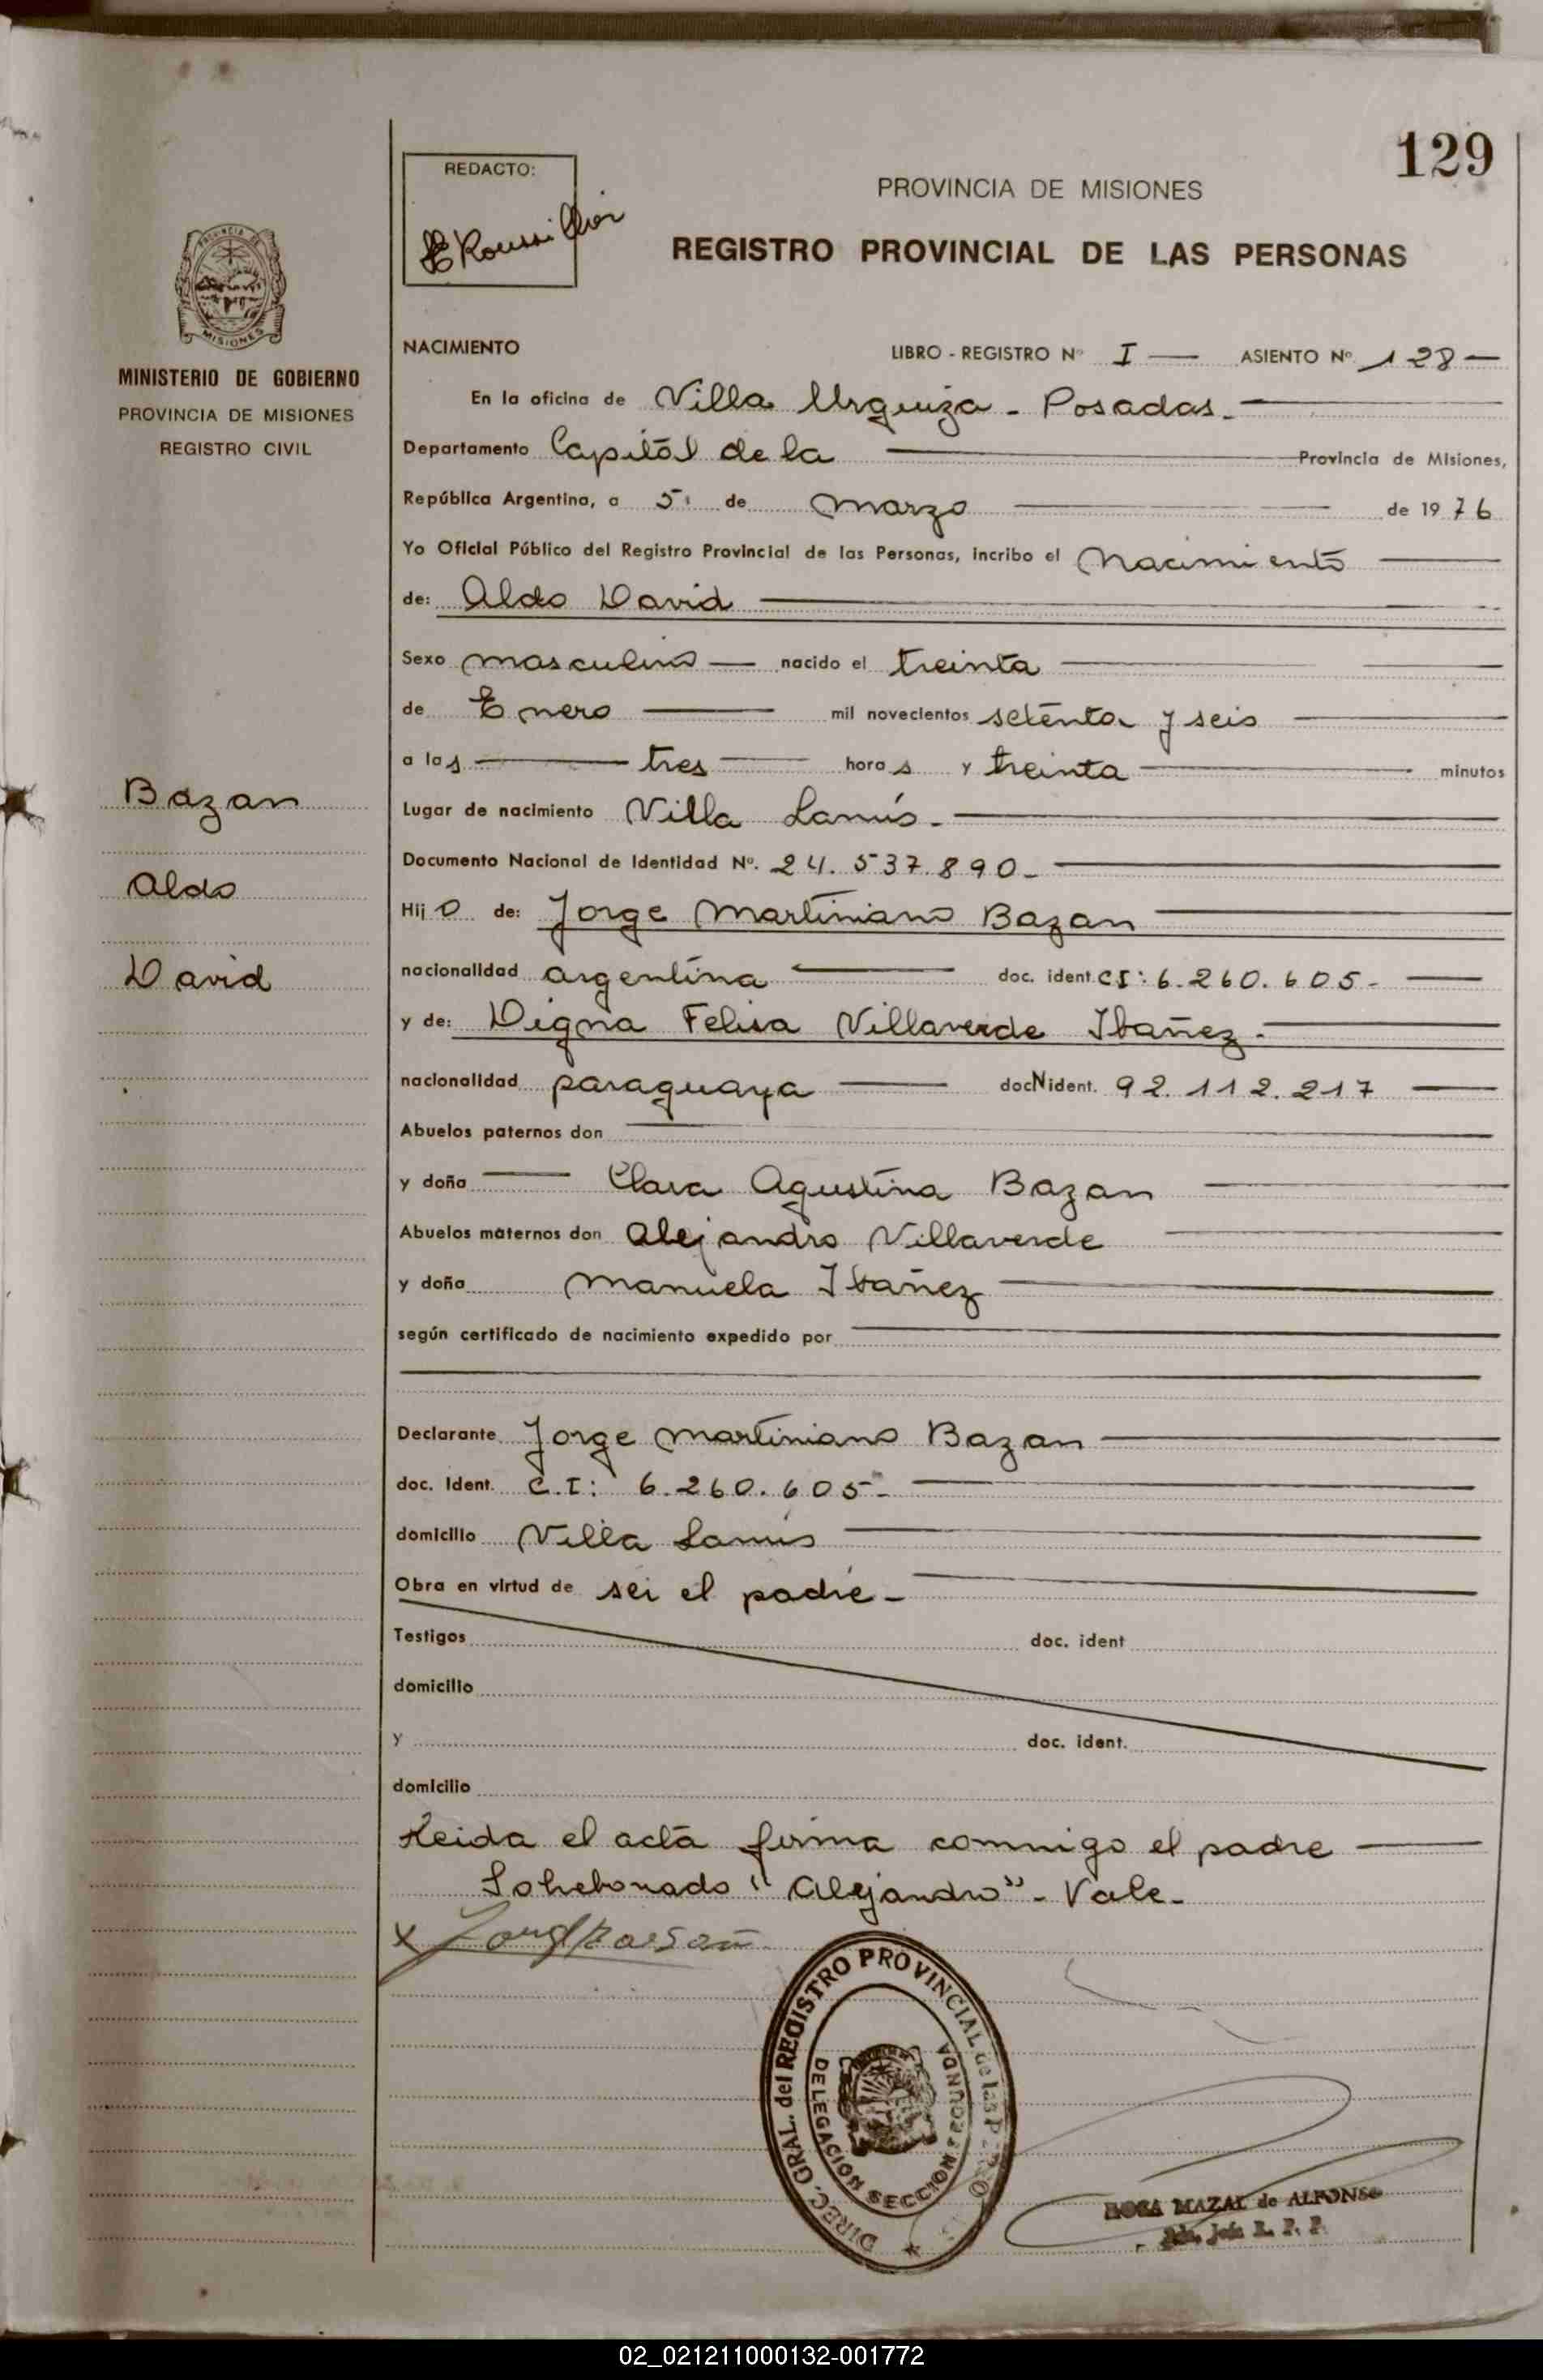 129
REDACTO:
PROVINCIA DE MISIONES
REGISTRO PROVINCIAL DE LAS PERSONAS
MISIONES
MINISTERIO DE GOBIERNO
PROVINCIA DE MISIONES
REGISTRO CIVIL
NACIMIENTO LIBRO - REGISTRO Nº I ASIENTO Nº 128
En la oficina de Villa Urquiza - Posadas.
Departamento Capital de la Provincia de Misiones,
República Argentina, a 5 de marzo de 1976
Yo Oficial Público del Registro Provincial de las Personas, incribo el nacimiento
de: Aldo David
Sexo masculino nacido el treinta
de Enero mil novecientos setenta y seis
a las tres horas y treinta minutos
Lugar de nacimiento Villa Lanús.
Documento Nacional de Identidad Nº. 24.537.890-
Hijo de: Jorge Martiniano Bazan
nacionalidad argentina doc. ident. CI: 6.260.605-
y de: Digna Felisa Villaverde Ibañez-
nacionalidad paraguaya docNident. 92.112.217
Abuelos paternos don
y doña Clara Agustina Bazan
Abuelos maternos don Alejandro Villaverde
y doña Manuela Ibañez
según certificado de nacimiento expedido por
Declarante Jorge Martiniano Bazan
doc. Ident. C.I: 6.260.605-
domicilio Villa Lanús
Obra en virtud de ser el padre-
Testigos doc. ident
domicilio
y doc. ident.
domicilio
Leida el acta firma conmigo el padre
Sobrebonado "Alejandro"- Vale-
Bazan
Aldo
David
DIREC. GRAL. del REGISTRO PROVINCIAL de las
DELEGACION SECCION SEGUNDA
ROSA MAZAL de ALFONSO
02_021211000132-001772